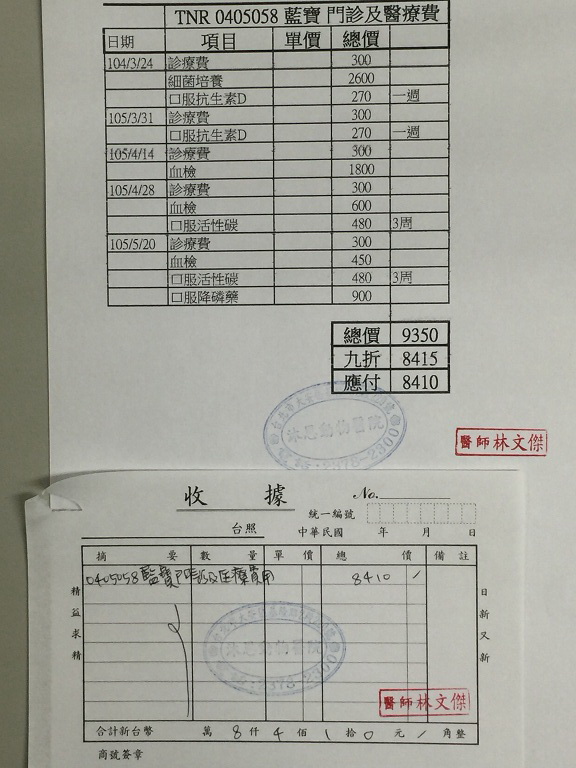 TNR 0405058 藍寶 門診及醫療費
日期 項目 單價 總價
104/3/24 診療費 300
細菌培養 2600
口服抗生素D 270 一週
105/3/31 診療費 300
口服抗生素D 270 一週
105/4/14 診療費 300
血檢 1800
105/4/28 診療費 300
血檢 600
口服活性碳 480 3周
105/5/20 診療費 300
血檢 450
口服活性碳 480 3周
口服降磷藥 900
總價 9350
九折 8415
應付 8410
沐恩動物醫院
2378-2300
醫師林文傑
收據 No.
統一編號
台照 中華民國 年 月 日
摘要 數量 單價 總價 備註
0405058 藍寶門診及醫療費用 8410
精益求精
日新又新
沐恩動物醫院
2378-2300
醫師林文傑
合計新台幣 萬 8 仟 4 佰 1 拾 0 元 角整
商號簽章